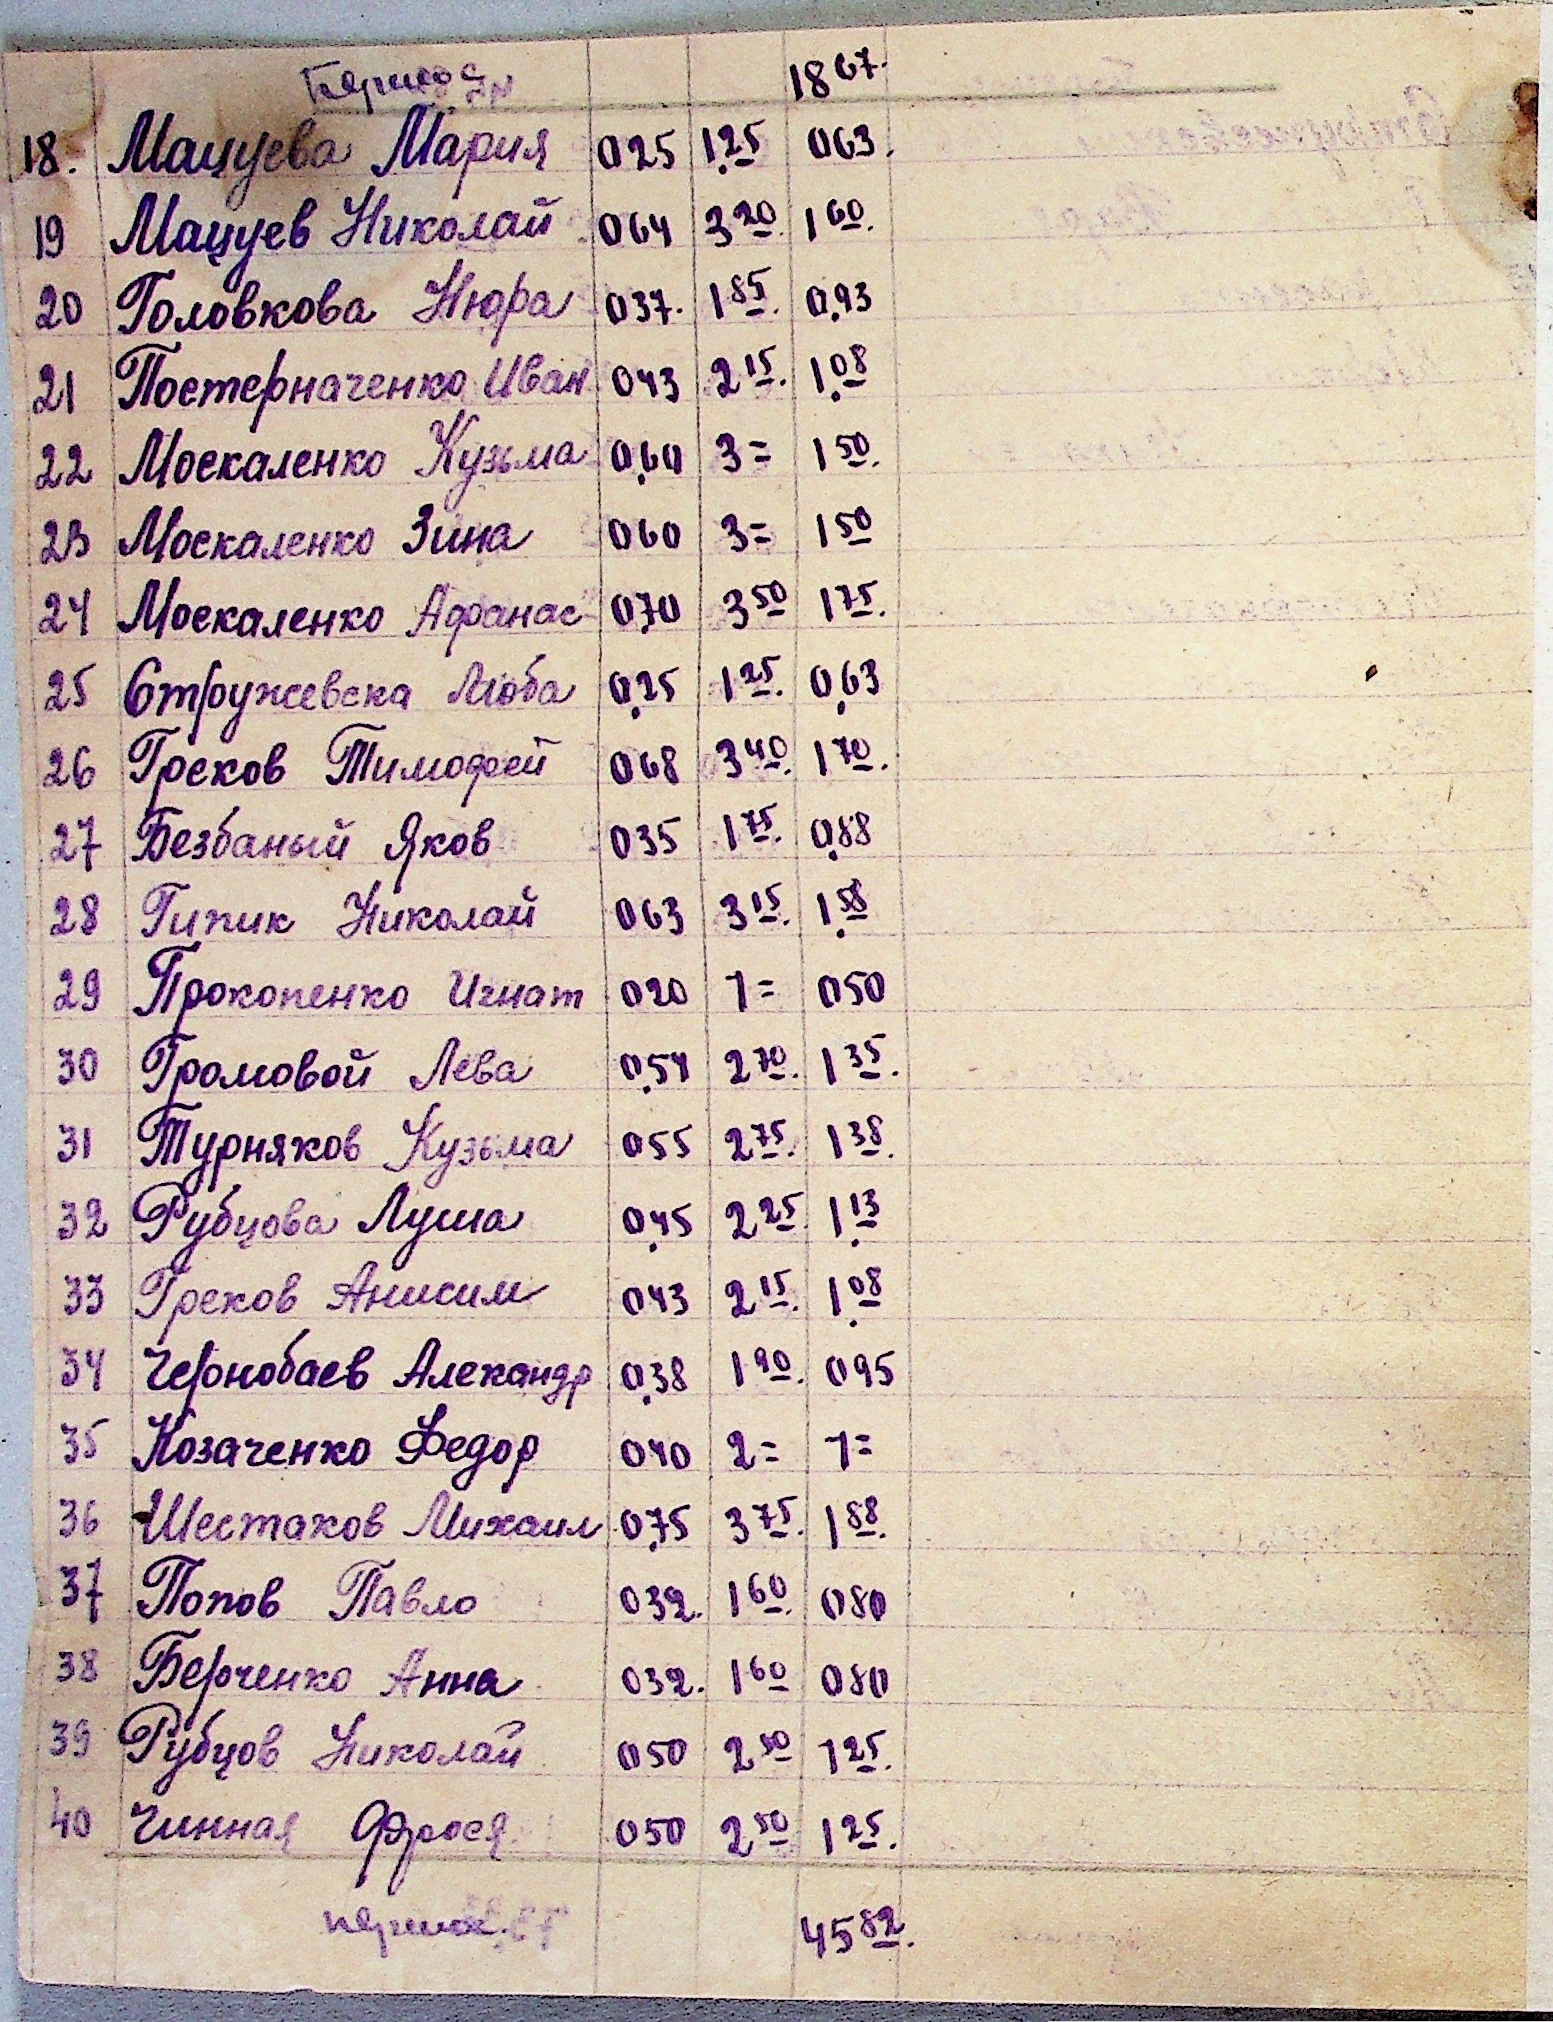 18 67.
18. Мацуева Мария 025 1.25 063.
19 Мацуев Николай 064 3 20. 1 60.
20 Головкова Нюра 037. 1 85. 0.93
21 Постерначенко Иван 043 2 15. 1.08
22 Москаленко Кузьма 0.60 3= 1 50.
23 Москаленко Зина 060 3= 1 50
24 Москаленко Афанас 070 3 50 1 75.
25 Стружевска Люба 0.25 1 25. 0.63
26 Греков Тимофей 068 3 40. 1 70.
27 Безбаный Яков 035 1 75. 0.88
28 Гипик Николай 063 3 15. 1.58
29 Прокопенко Игнат 020 1= 050
30 Громовой Лёва 0.54 2 70. 1 35.
31 Турняков Кузьма 055 2 75. 1 38.
32 Рубцова Луша 0.45 2 25. 1.13
33 Греков Анисим 043 2 15. 1.08
34 Чернобаев Алекандр 0.38 1 90. 095
35 Козаченко Федор 040 2= 1=
36 Шестаков Михаил 0.75 3 75. 1 88.
37 Попов Павло 032. 1 60. 080
38 Берченко Анна 032. 1 60 080
39 Рубцов Николай 050 2 50 1 25.
40 Чинная Фрося 050 2 50 1 25.
45 82.